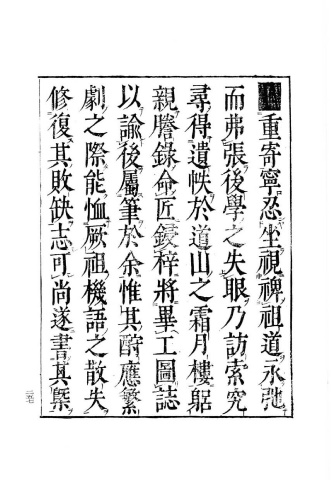 重寄寧忍坐視禆祖道永弛
而弗張後學之失眼乃訪索究
尋得遺帙於道山之霜月樓躬
親謄錄命匠鋟梓將畢工圖誌
以諭後屬筆於余惟其酧應繁
劇之際能恤厥祖機語之散失
修復其敗缺志可尚遂書其槩
二五七